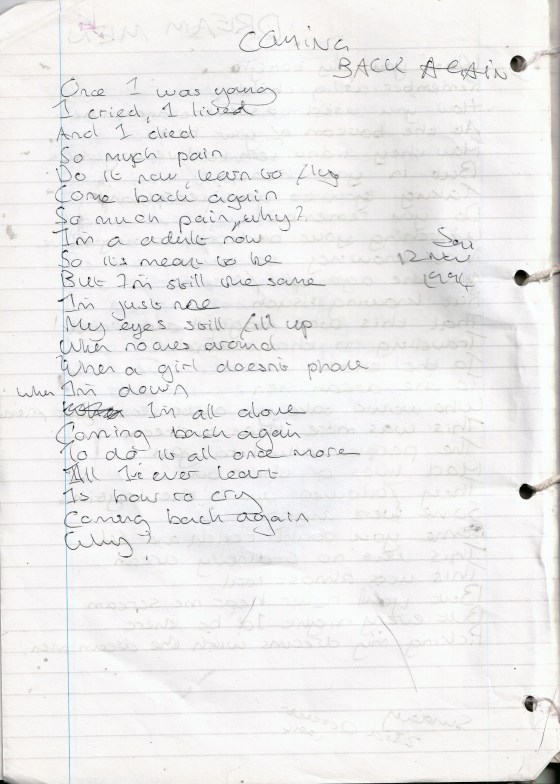 COMING
BACK AGAIN
Once I was young
I cried, I lived
And I died
So much pain
Do it now, learn to fly
Come back again
So much pain, why?
I'm a adult now
So its meant to be
But I'm still the same
I'm just me
My eyes still fill up
When no ones around
When a girl doesn't phone
When I'm down
I'm all alone
Coming back again
To do it all once more
All I've ever leart
Is how to cry
Coming back again
Why?
12 Nov
1994